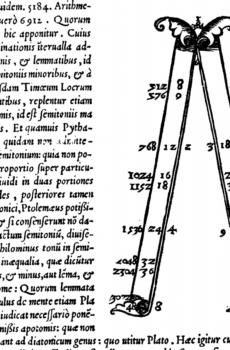 uidem. 5184. Arithme-
uerò 6912. Quorum
hic apponitur. Cuius
inationis iterualla ad-
nis, & lemmatibus, id
mitonijs minoribus, & à
sdam Timæum Locrum
tibus, replentur etiam
mis, id est semitonijs ma
s. Et quamuis Pytha-
quidam non
emitonium: quia non po-
roportio super particu-
iuidi in duas portiones
les, posteriores tamen
onici, Ptolemæus potißi-
& si consenserunt nō da-
actum semitoniū, diuise-
hilominus tonū in semi-
inæqualia, quæ dicūtur
us, & minus, aut lēma, &
me: Quorum lemmata
ulus de mente etiam Pla
dicat necessariò ponē-
mißis apotomis: quæ non
ant ad diatonicum genus: quo utitur Plato. Hæc igitur cu
512 8
576 9
768 12 2 3 18
1024 16
1152 18
1536 24 4
2048 32
2304 36
8